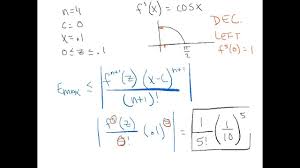 n=4
c=0
x=.1
0≤z≤.1
f⁵(x)=cosx
π/2
DEC.
LEFT
f⁵(0)=1
Emax ≤ |f^(n+1)(z) (x-c)^(n+1) / (n+1)!|
|f⁵(z)/5! (.1)⁵| = 1/5! (1/10)⁵